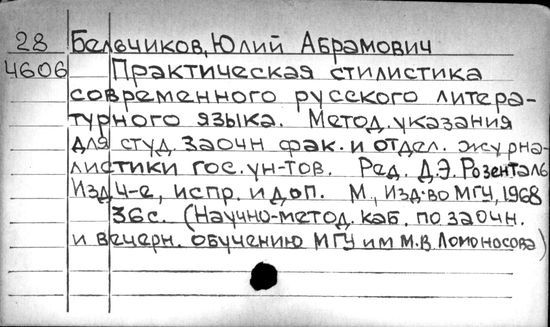 28 Бельчиков, Юлий Абрамович
4606 Практическая стилистика
современного русского литера-
турного языка. Метод. указания
для студ. заочн фак. и отдел. журна-
листики гос. ун-тов. Ред. Д.Э. Розенталь
Изд 4-е, испр. и доп. М., Изд-во МГУ, 1968
36с. (Научно-метод. каб. по заочн.
и вечерн. обучению МГУ им М.В. Ломоносова)